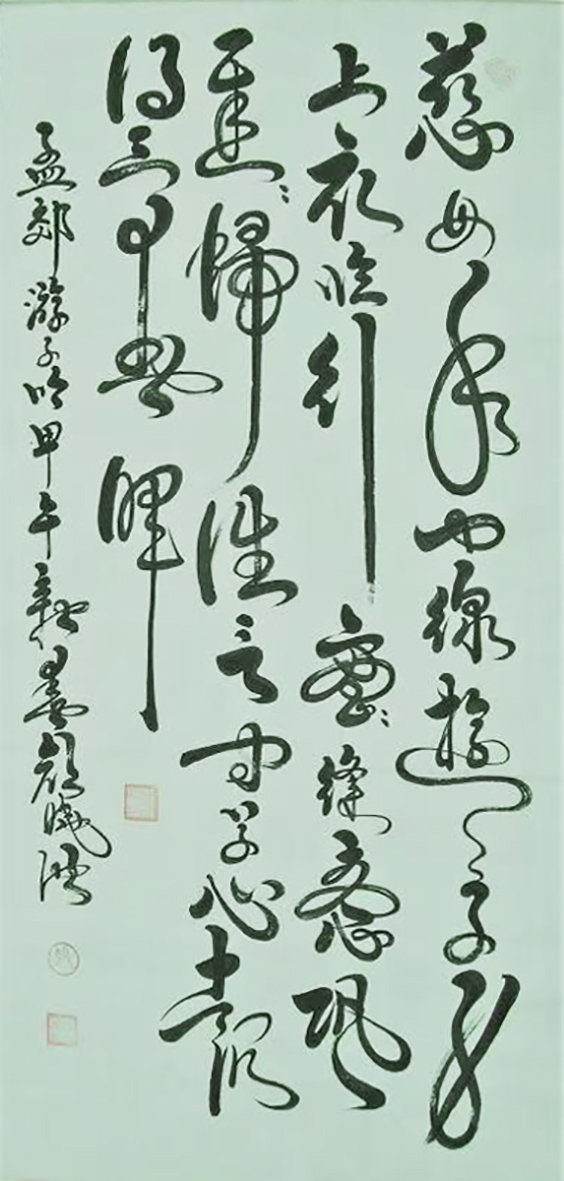 慈母手中線遊子身
上衣臨行密〻縫意恐
遲〻歸誰言寸草心報
得三春暉
孟郊游子吟甲午